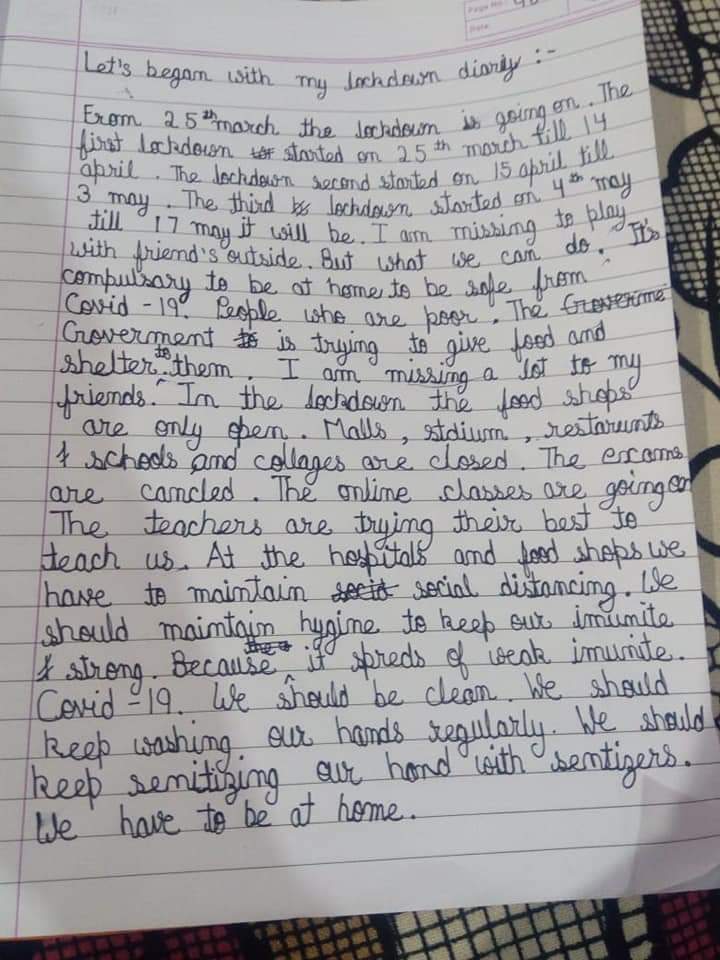 Page No.
Date
Let's began with my lockdown diariy :-
From 25th march the lockdown is going on. The
first lockdown started on 25th march till 14
april. The lockdown second started on 15 april till
3 may. The third lockdown started on 4th may
till 17 may it will be. I am missing to play
with friend's outside. But what we can do. It's
compulsary to be at home to be safe from
Covid-19. People who are poor. The
Groverment is trying to give food and
shelter to them. I am missing a lot to my
friends. In the lockdown the food shops
are only open. Malls, stdium, restarunts
& schools and collages are closed. The exams
are cancled. The online classes are going on
The teachers are trying their best to
teach us. At the hospitals and food shops we
have to maintain social distancing. We
should maintain hygine to keep our imunite
strong. Because it spreds of weak imunite.
Covid-19. We should be clean. We should
keep washing our hands regularly. We should
keep senitizing our hand with sentizers.
We have to be at home.